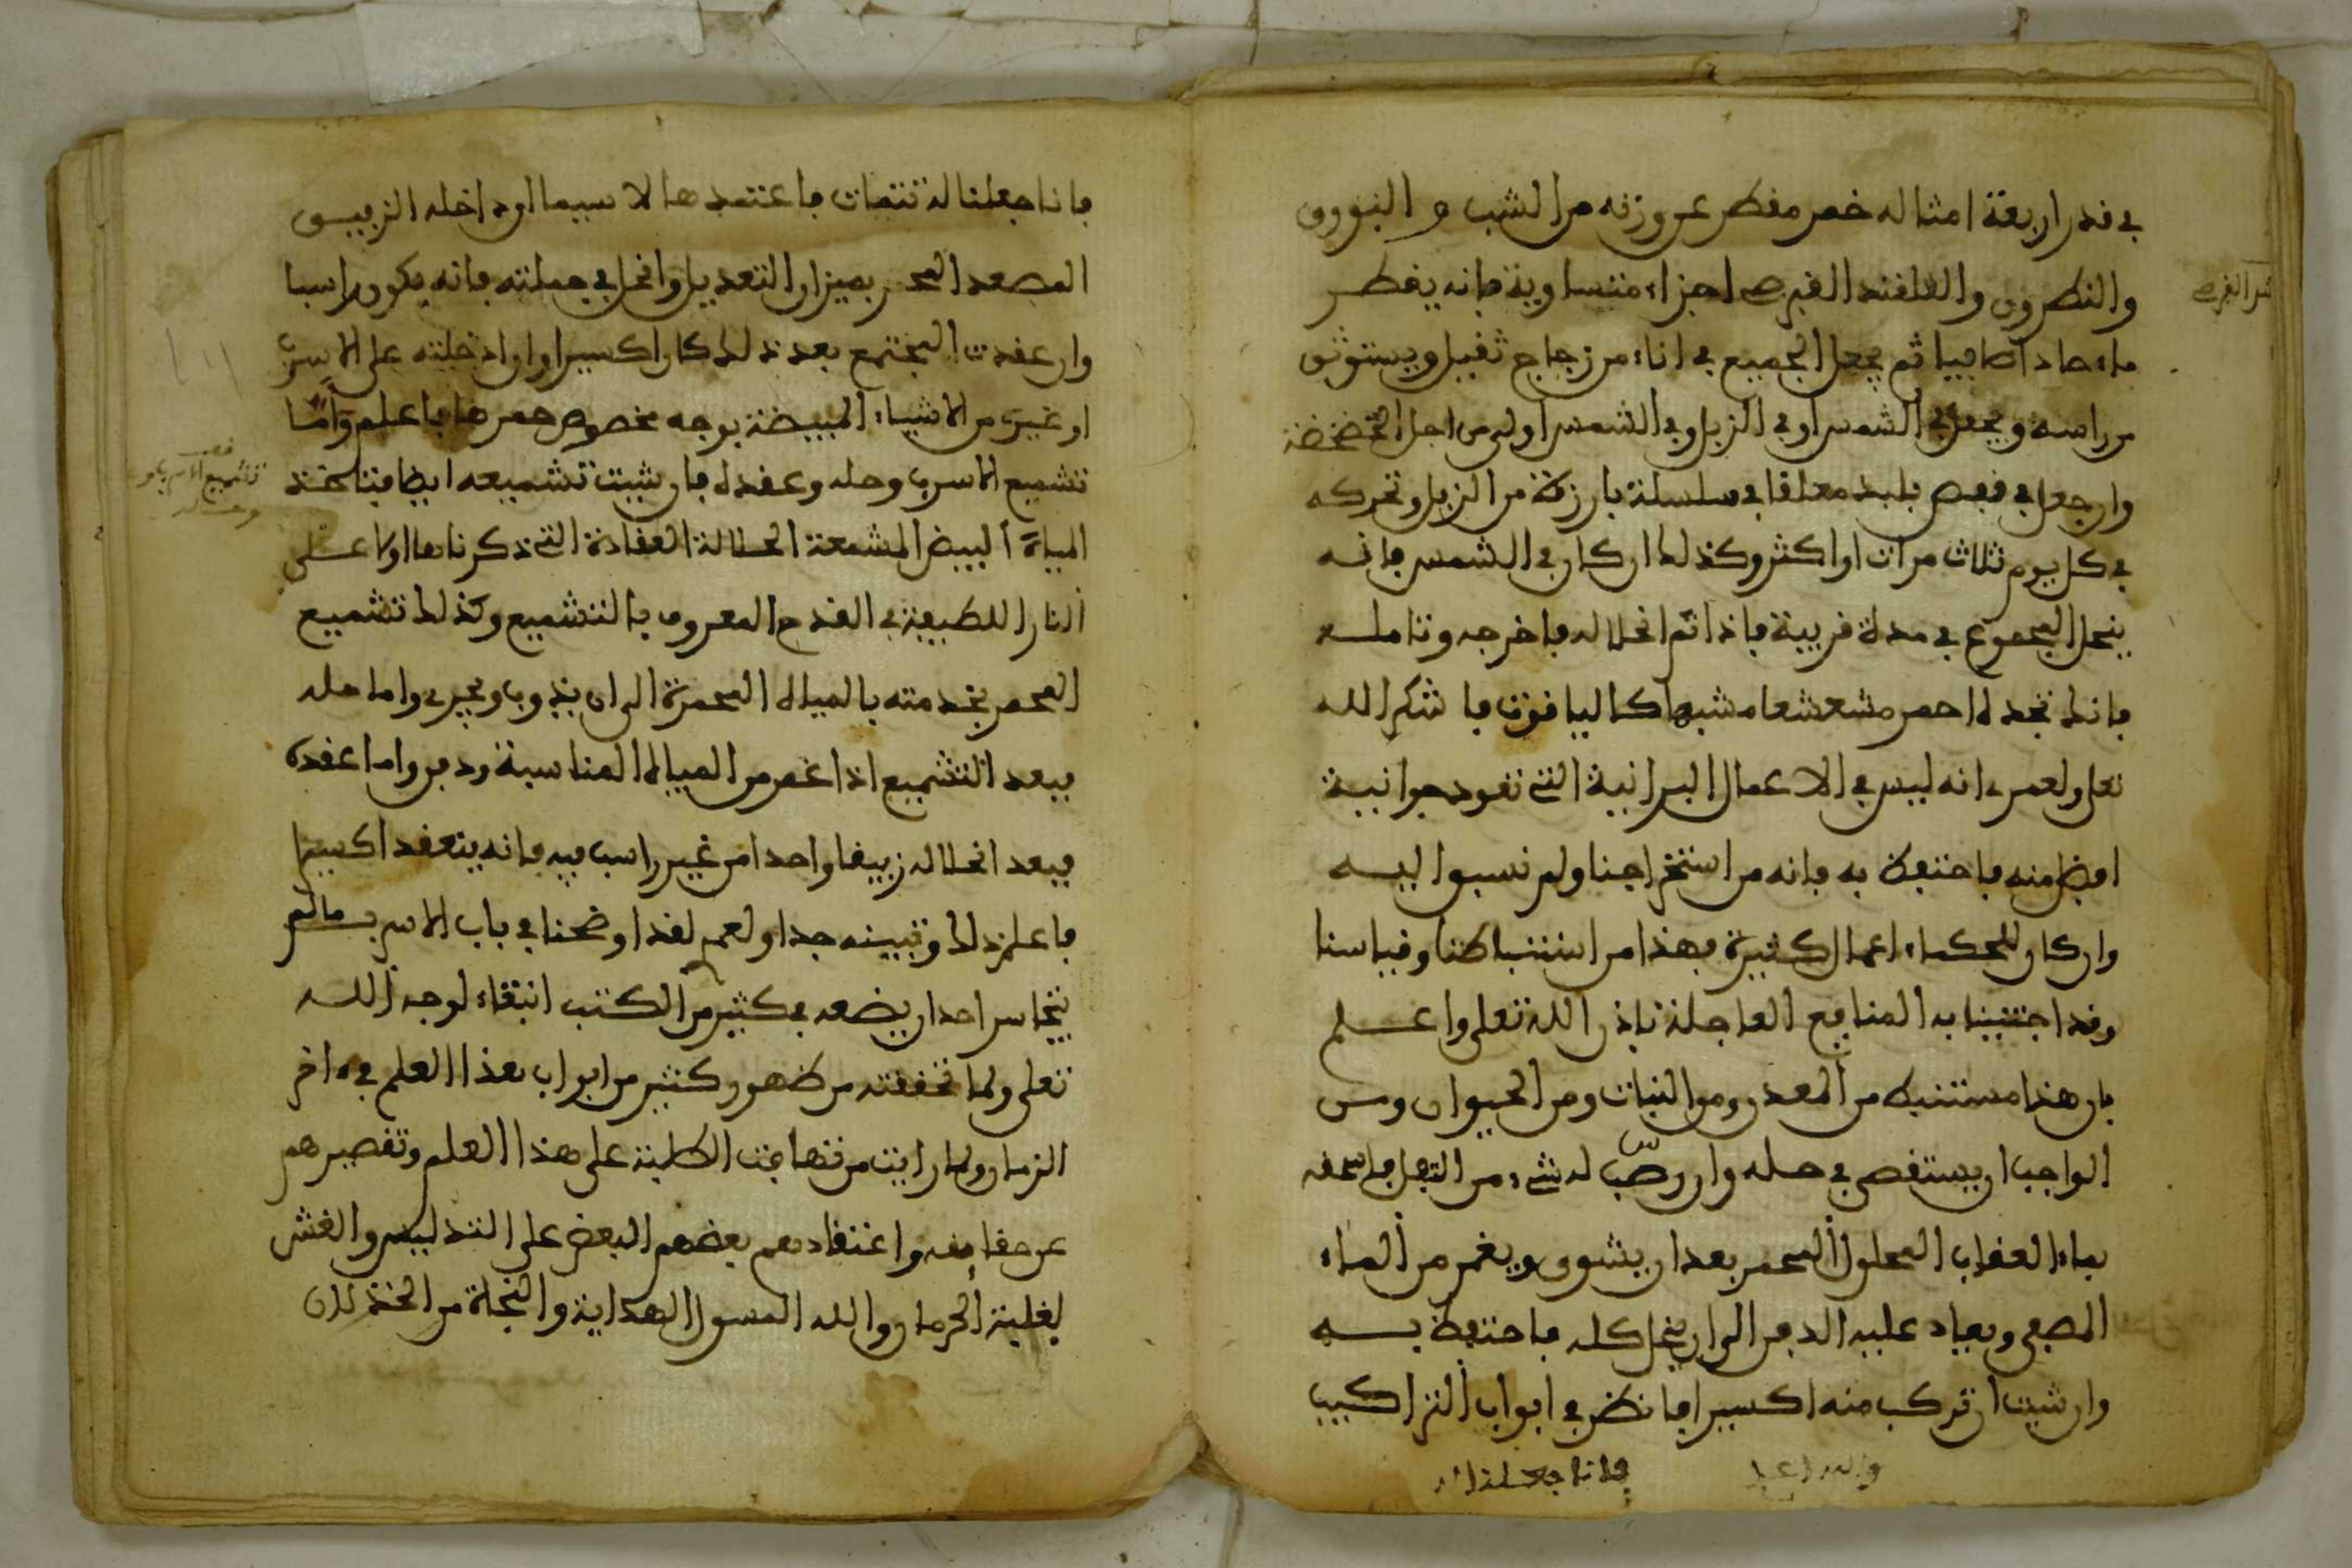 في قدر اربعة امثاله خمر مقطر عن وزنه من الشب والبورق
والنطرون والقلقند القبرصي اجزاء متساوية فانه يقطر
ماء حادا صافيا ثم يجعل الجميع في اناء من زجاج ثقيل ويستوثق
من راسه ويجعل في الشمس او في الزبل وفي الشمس اولى من اجل الخضخضة
وان جعل في قفص بلبد معلقا في سلسلة بارزة من الزبل وتحركه
في كل يوم ثلاث مرات او اكثر وكذلك ان كان في الشمس فانه
ينحل المجموع في مدة قريبة فاذا تم انحلاله فاخرجه وتامله
فانك تجده احمر مشعشعا مشبها كالياقوت فاشكر الله
تعلى ولعمري انه ليس في الاعمال البرانية التي تقود جوانية
افضل منه فاحتفظ به فانه من استخراجنا ولم نسبوا ليه
وان كان للحكماء اعمال كثيرة فهذا من استنباطنا وقياسنا
وقد اجتنينا به المنافع العاجلة باذن الله تعلى واعلم
بان هذا مستنبط من المعدن ومن النبات ومن الحيوان ومن
الواجب ان يستقصى في حله وان رسب له شيء من الثفل فاسحقه
بماء العقاب المحلول المحمر بعد ان يشوى ويغمر من الماء
المصفى ويعاد عليه الدفن الى ان ينحل كله فاحتفظ به
وان شيت ان تركب منه اكسيرا فانظر في ابواب التراكيب
والله اعلم
فانا جعلنا له
فانا جعلنا له تتمات فاعتمدها لا سيما ان داخله الزيبق
المصعد المحمر بميزان التعديل وانحل في جملته فانه يكون راسبا
وان عقدت المجتمع بعد ذلك كان اكسيرا وان ادخلته على الاسرب
او غيره من الاشياء المبيضة بوجه مخصوص حمرها فاعلم واما
تشميع الاسرب وحله وعقده فان شيت تشميعه ايضا فتاخذ
المياه البيض المشمعة الحلالة العقادة التي ذكرناها اولا على
النار اللطيفة في القدح المعروف بالتشميع وكذلك تشميع
المحمر بخدمته بالمياه المحمرة الى ان يذوب ويجري واما حله
فبعد التشميع اذا غمر من المياه المناسبة ودفن واما عقده
فبعد انحلاله زيبقا واحدا من غير راسب فيه فانه ينعقد اكسيرا
فاعلم ذلك وتبينه جدا ولعمري لقد اوضحنا في باب الاسرب ما لم
يتجاسر احد ان يضعه في كثير من الكتب ابتغاء لوجه الله
تعلى ولما تحققته من ظهور كثير من ابواب هذا العلم في اخر
الزمان ولما رايت من تهافت الطلبة على هذا العلم وتقصيرهم
عن حقايقه واعتقادهم بعضهم البعض على التدليس والغش
لغلبة الحرمان والله المسول الهداية والنجاة من الخذلان
تشميع الاسرب